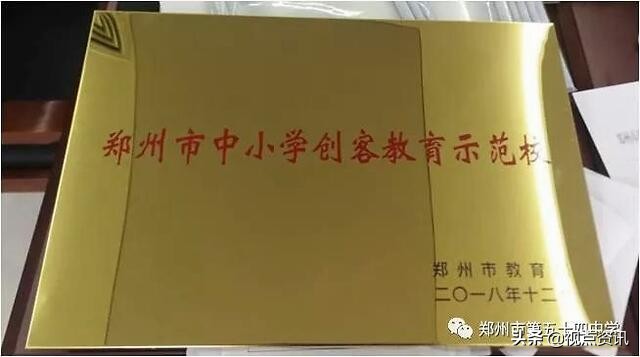 郑州市中小学创客教育示范校
郑州市教育
二〇一八年十二
郑州市第五十四中学
头条@视点资讯